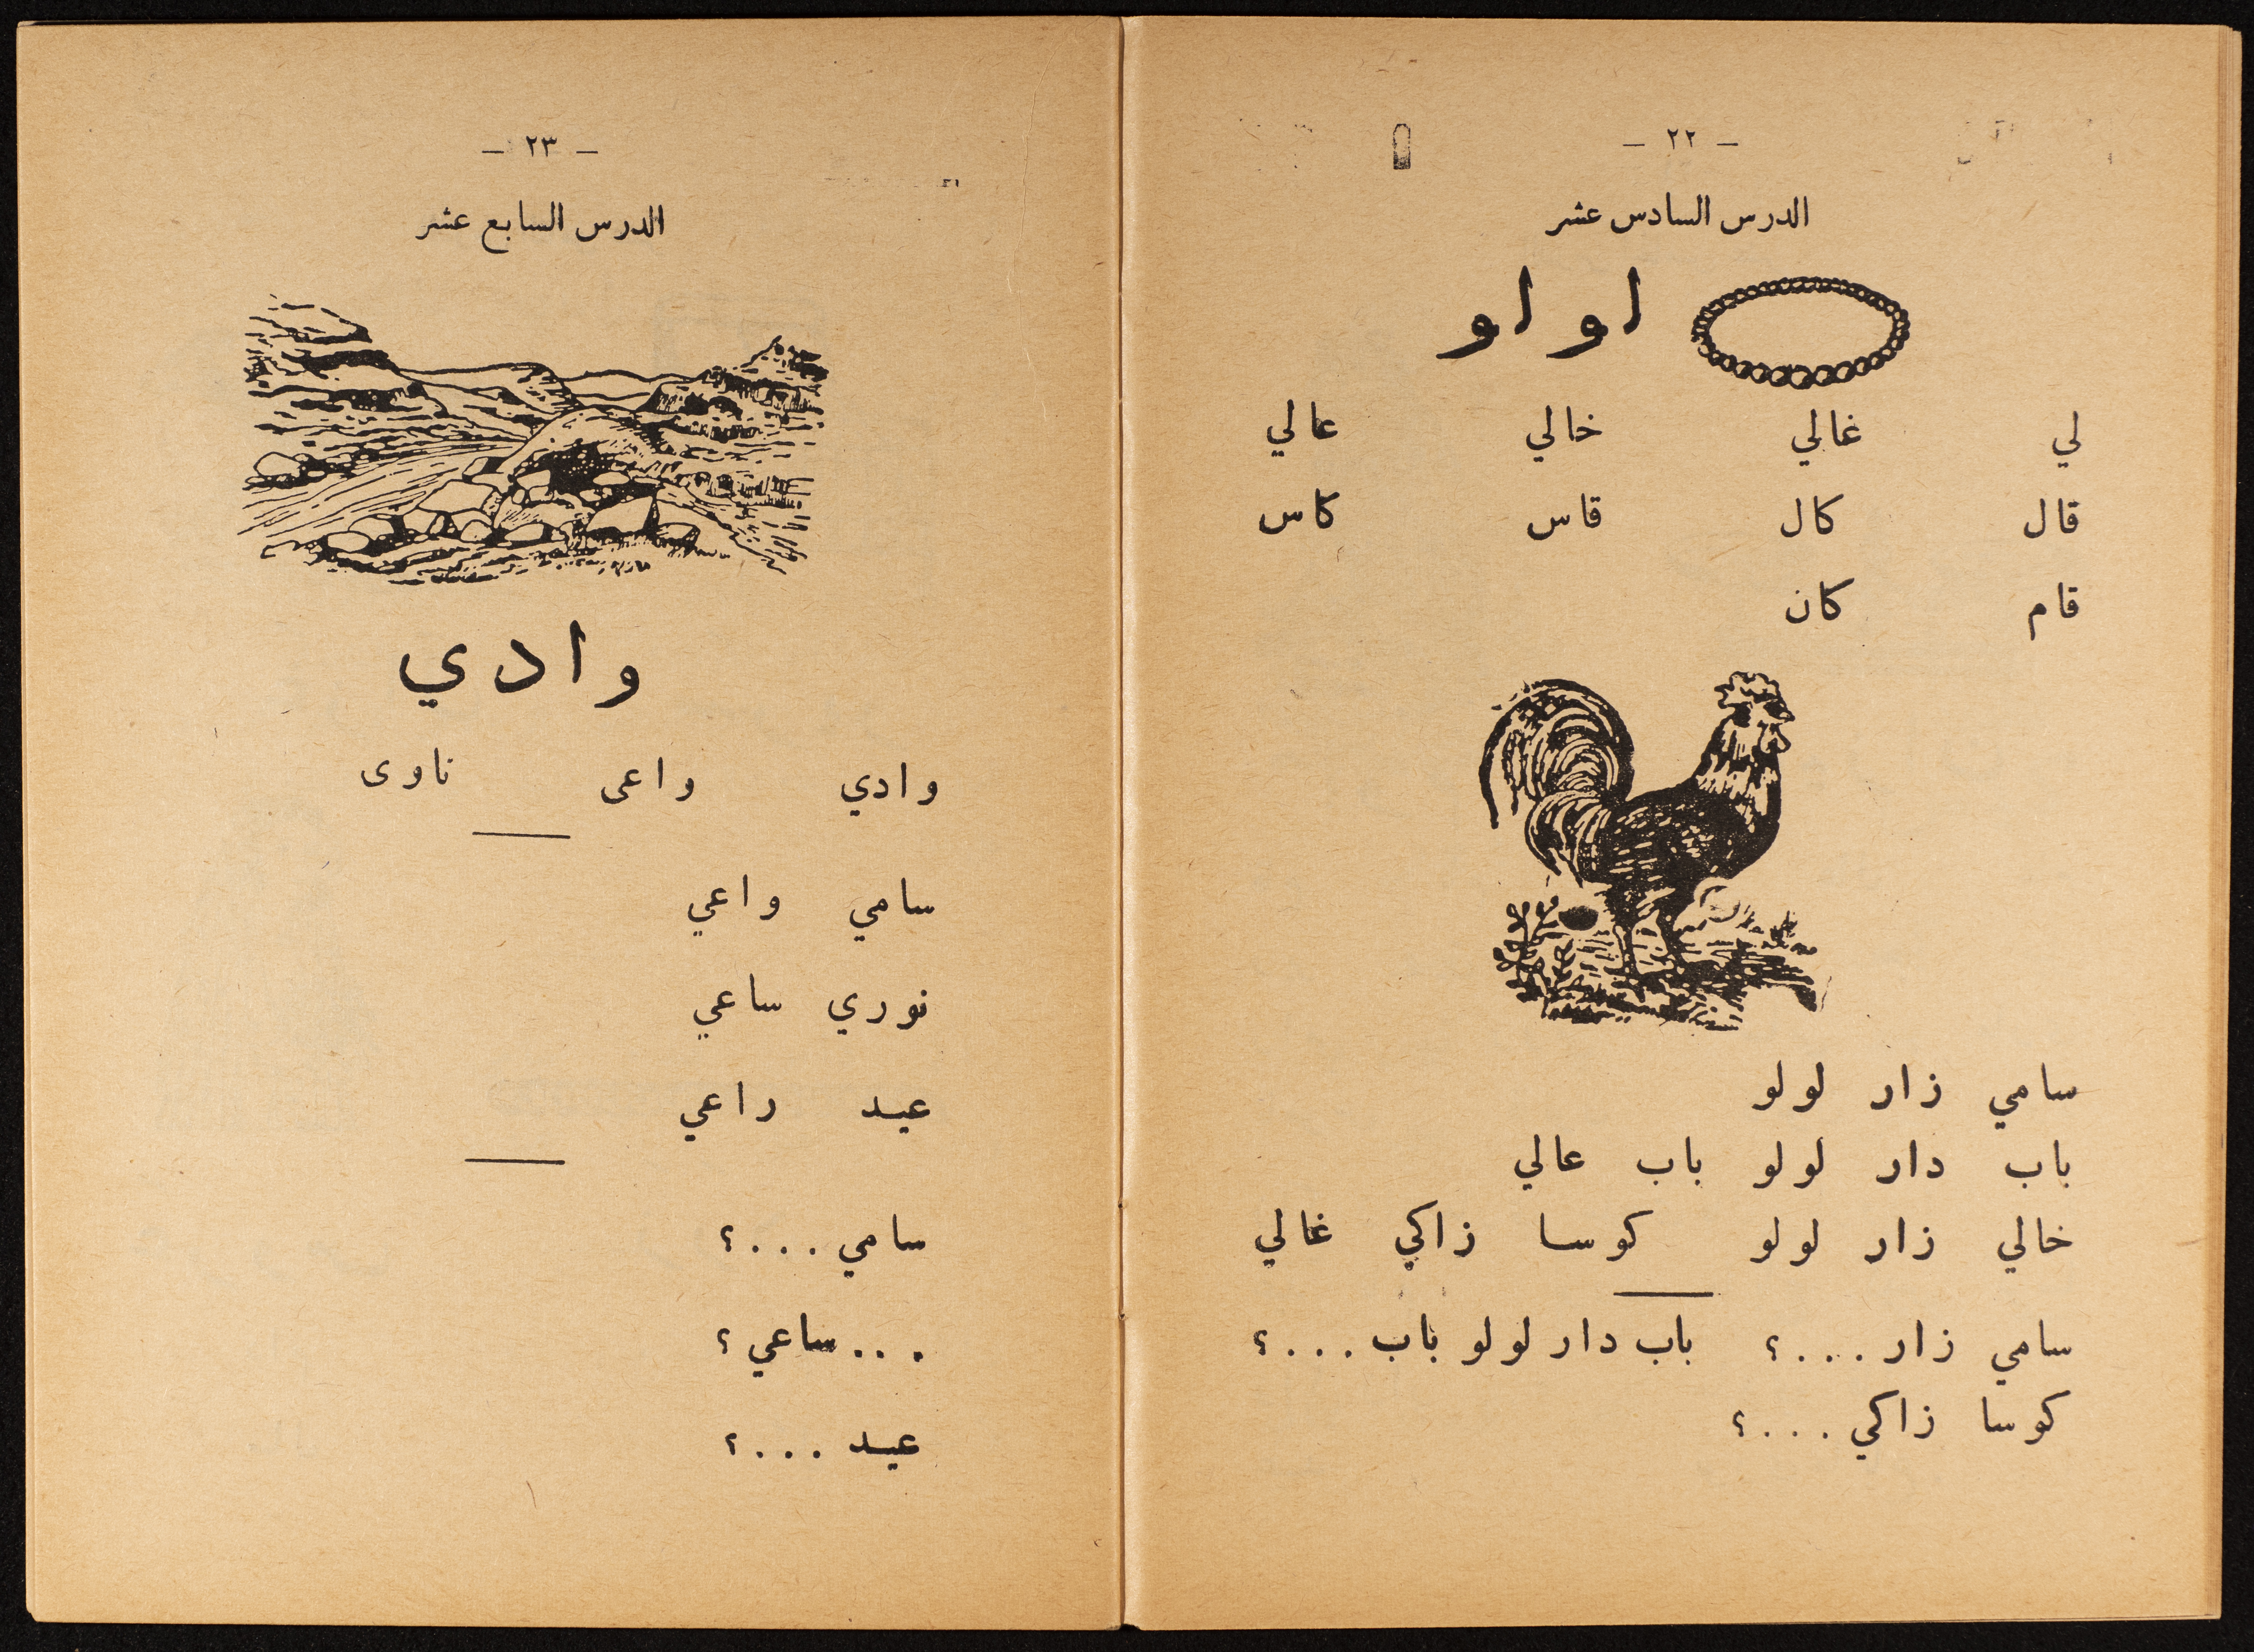 – ٢٢ –
الدرس السادس عشر
لو لو
لي غالي خالي عالي
قال كال قاس كاس
قام كان
سامي زار لولو
باب دار لولو باب عالي
خالي زار لولو كوسا زاكي غالي
سامي زار ...؟ باب دار لولو باب ...؟
كوسا زاكي ...؟
– ٢٣ –
الدرس السابع عشر
وادي
وادي واعى ناوى
سامي واعي
نوري ساعي
عيد راعي
سامي ...؟
... ساعي؟
عيد ...؟